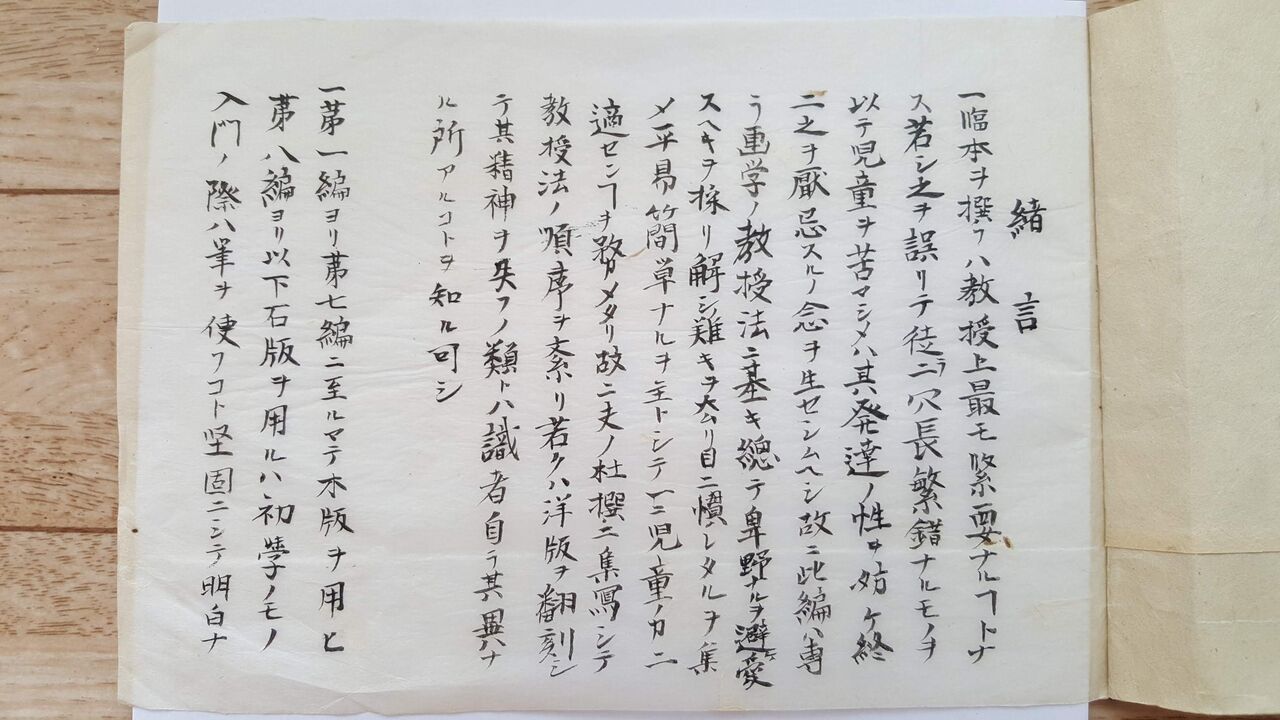 緒言
一臨本ヲ撰フハ教授上最モ緊要ナルヿトナ
ス若シ之ヲ誤リテ徒ニ冗長繁錯ナルモノヲ
以テ児童ヲ苦マシメハ其発達ノ性ヲ妨ケ終
ニ之ヲ厭忌スルノ念ヲ生セシムヘシ故ニ此編ハ専
ラ画学ノ教授法ニ基キ總テ卑野ナルヲ避ケ愛
スヘキヲ採リ解シ難キヲ去リ目ニ慣レタルヲ集
メ平易簡単ナルヲ主トシテ一ニ児童ノカニ
適センヿヲ務メタリ故ニ夫ノ杜撰ニ集寫シテ
教授法ノ順序ヲ紊リ若クハ洋版ヲ翻刻シ
テ其精神ヲ失フノ類トハ識者自ラ其異ナ
ル所アルコトヲ知ル可シ
一第一編ヨリ第七編ニ至ルマテ木版ヲ用ヒ
第八編ヨリ以下石版ヲ用ルハ初學ノモノ
入門ノ際ハ筆ヲ使フコト堅固ニシテ明白ナ